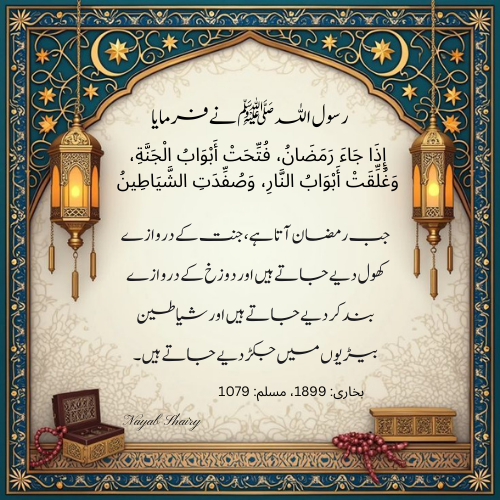 رسول اللہ ﷺ نے فرمایا
إِذَا جَاءَ رَمَضَانُ، فُتِّحَتْ أَبْوَابُ الْجَنَّةِ،
وَغُلِّقَتْ أَبْوَابُ النَّارِ، وَصُفِّدَتِ الشَّيَاطِينُ
جب رمضان آتا ہے، جنت کے دروازے
کھول دیے جاتے ہیں اور دوزخ کے دروازے
بند کر دیے جاتے ہیں اور شیاطین
بیڑیوں میں جکڑ دیے جاتے ہیں۔
بخاری: 1899، مسلم: 1079
Nayab Shairy